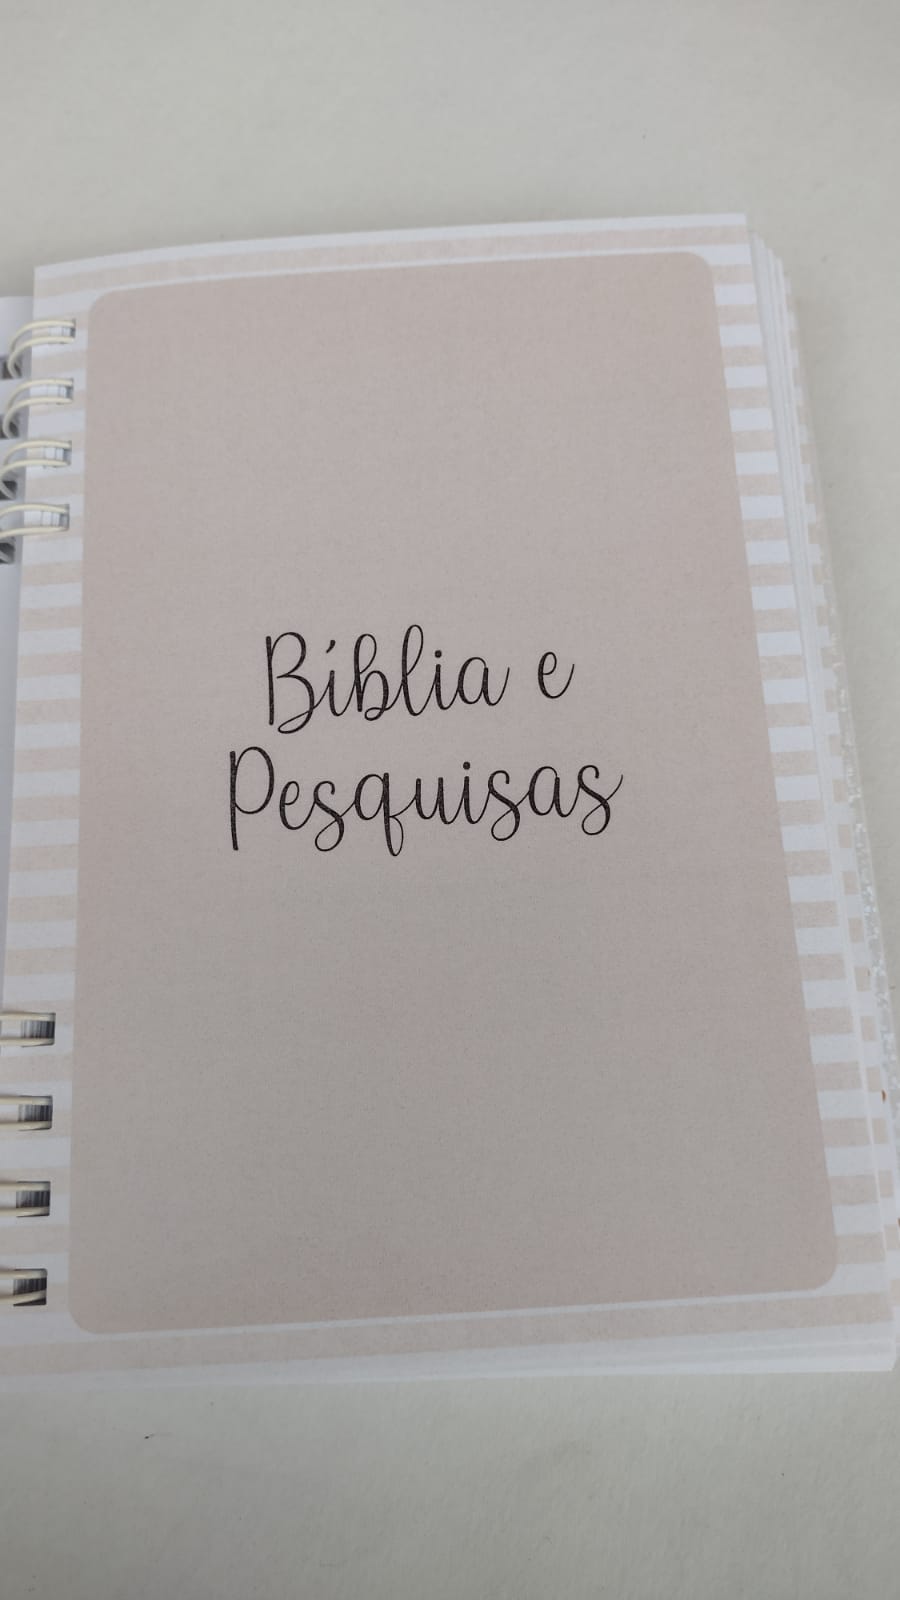 Bíblia e
Pesquisas